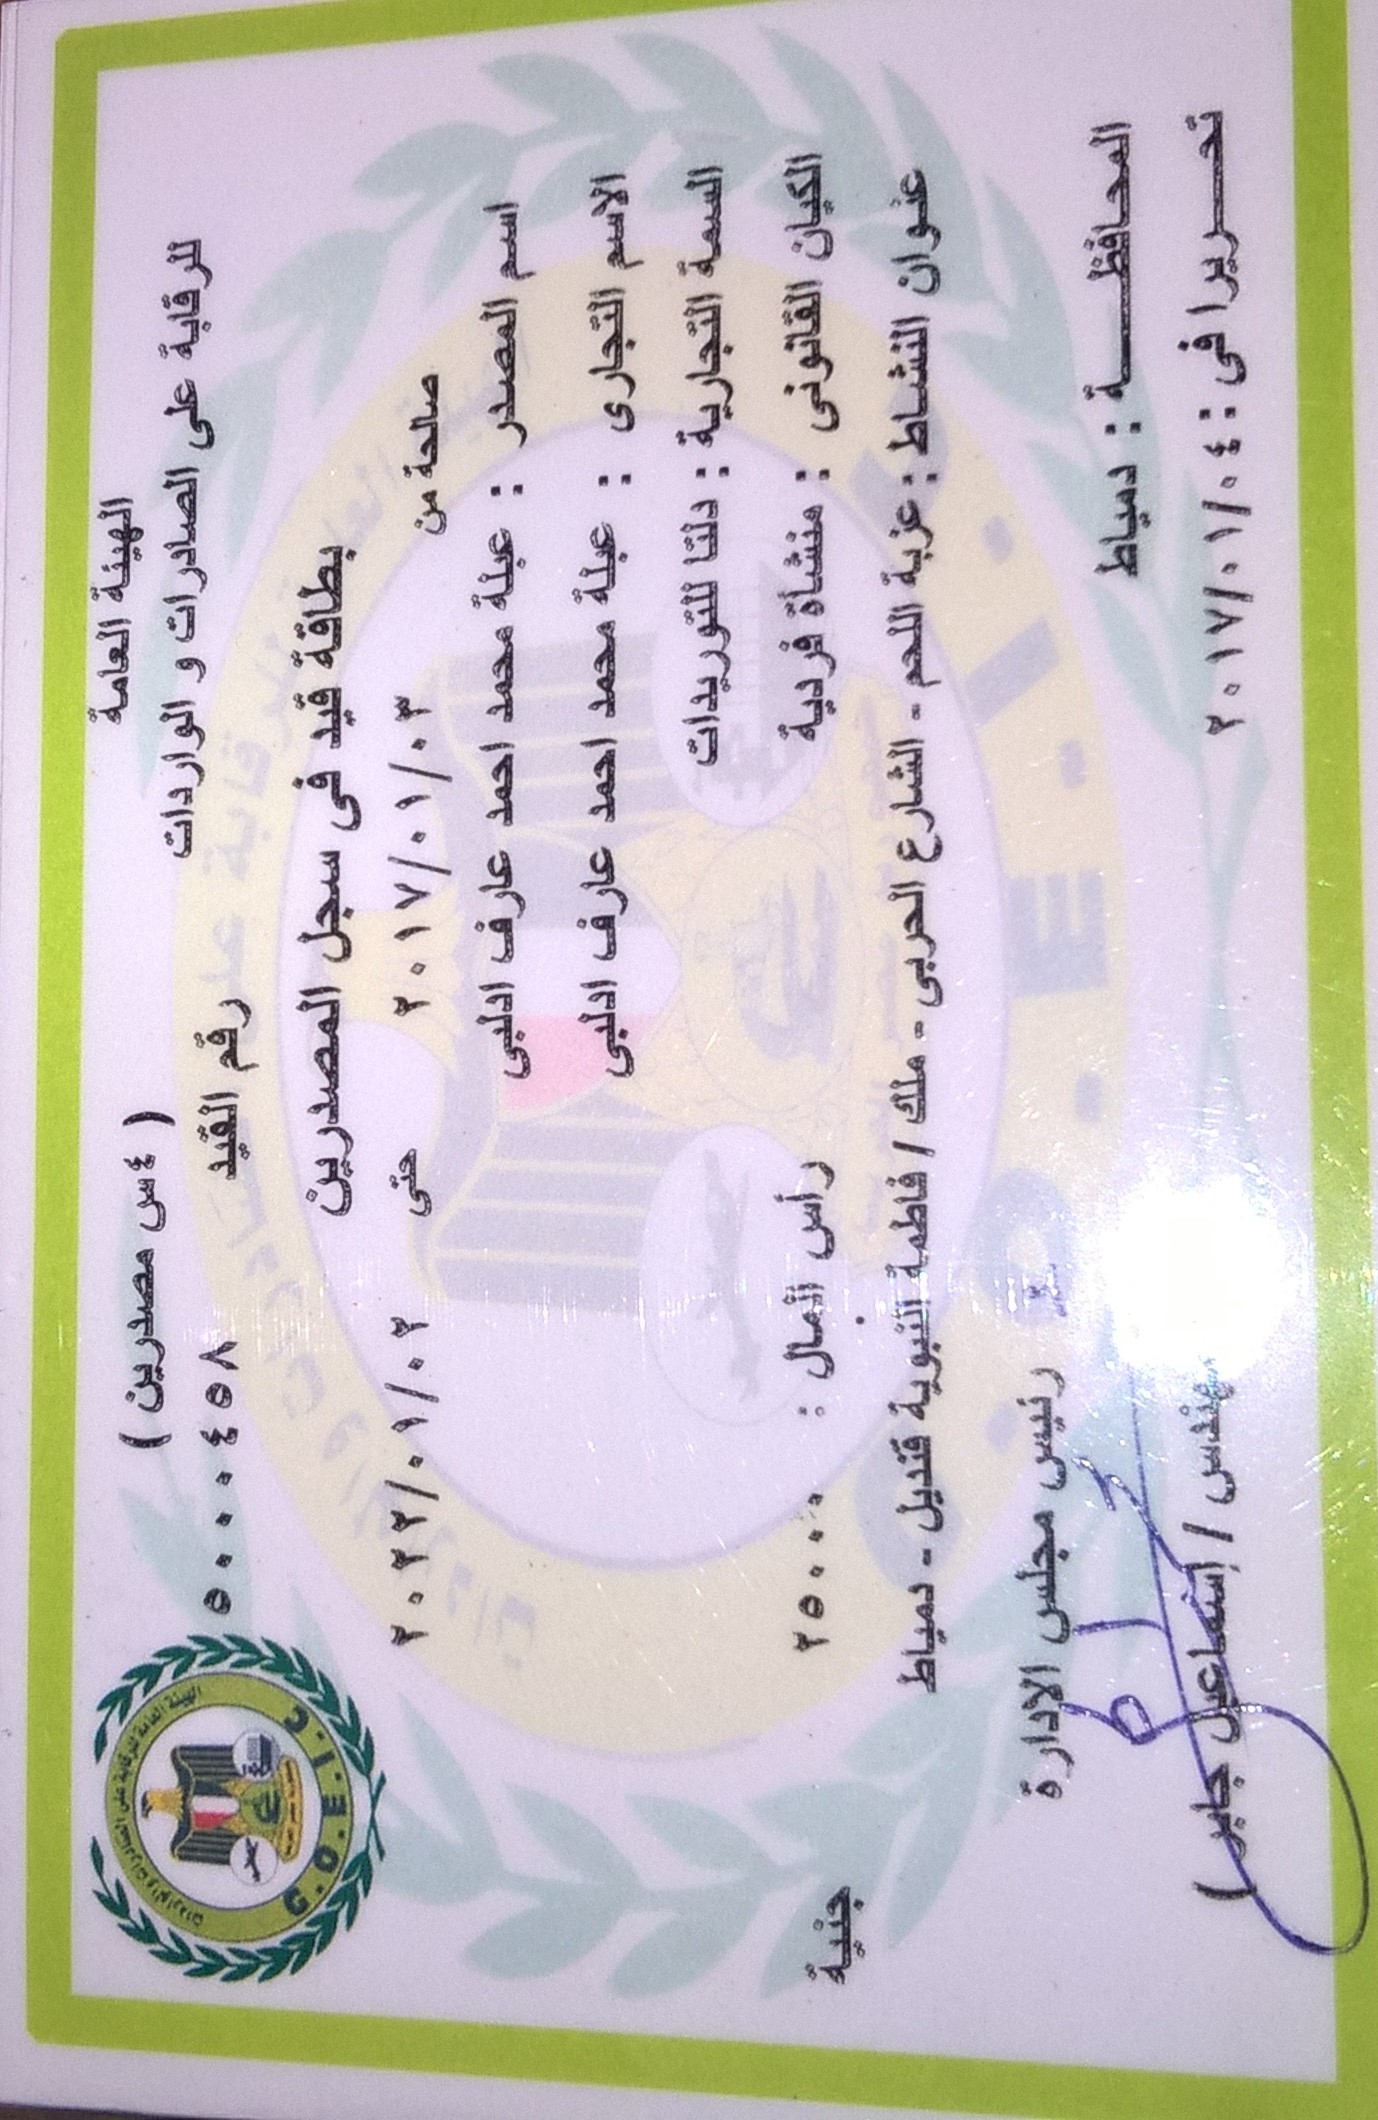 الهيئة العامة
للرقابة على الصادرات و الواردات
( ٤س مصدرين )
رقم القيد ٥٠٠٠٤٥٨
بطاقة قيد فى سجل المصدرين
صالحة من ٢٠١٧/٠١/٠٣ حتى ٢٠٢٢/٠١/٠٢
اسم المصدر : عبلة محمد احمد عارف ادلبى
الاسم التجارى : عبلة محمد احمد عارف ادلبى
السمة التجارية : دلتا للتوريدات
الكيان القانونى : منشأة فردية رأس المال : ٢٥٠٠٠ جنية
عنوان النشاط : عزبة اللحم - الشارع الحربى - ملك / فاطمة النبوية قنديل - دمياط
المحافظـــة : دمياط
رئيس مجلس الادارة
تحـــريرا فى : ٢٠١٧/٠١/٠٤
إسماعيل جابر )
الهيئة العامة للرقابة على الصادرات والواردات
G.O.E.I.C